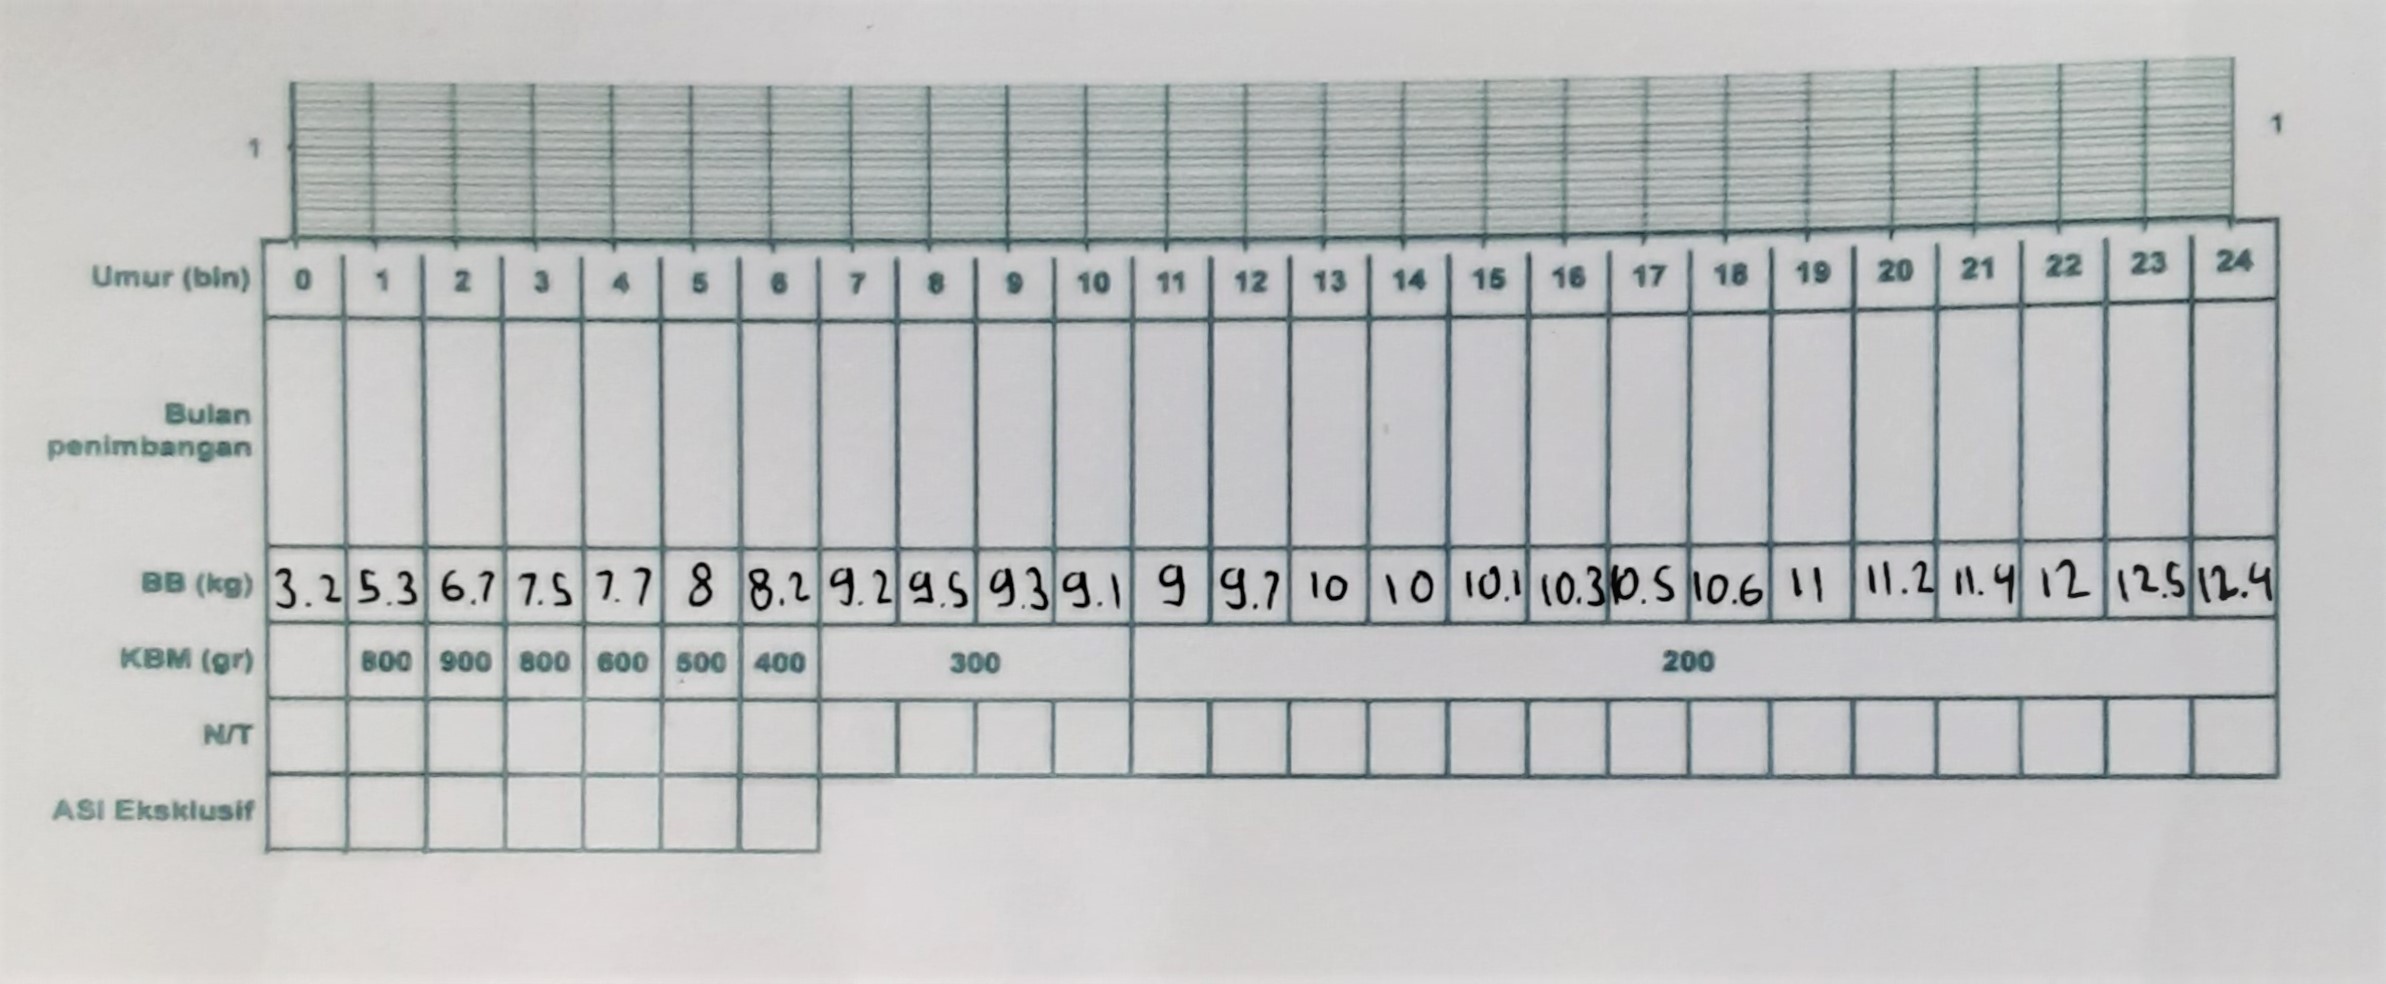 1 1
Umur (bln) 0 1 2 3 4 5 6 7 8 9 10 11 12 13 14 15 16 17 18 19 20 21 22 23 24
Bulan
penimbangan
BB (kg) 3.2 5.3 6.7 7.5 7.7 8 8.2 9.2 9.5 9.3 9.1 9 9.7 10 10 10.1 10.3 10.5 10.6 11 11.2 11.4 12 12.5 12.4
KBM (gr) 800 900 800 600 500 400 300 200
N/T
ASI Eksklusif